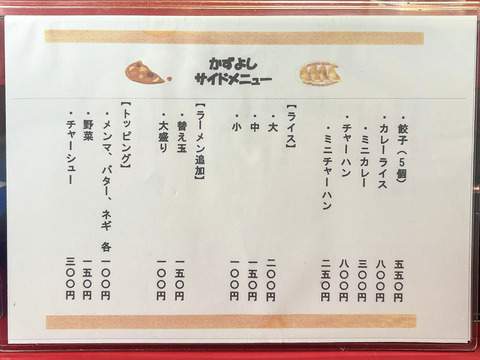 かずよし
サイドメニュー
・餃子(5個) 五五〇円
・カレーライス 八〇〇円
・ミニカレー 三〇〇円
・チャーハン 八〇〇円
・ミニチャーハン 二五〇円
【ライス】
・大 二〇〇円
・中 一五〇円
・小 一〇〇円
【ラーメン追加】
・替え玉 一五〇円
・大盛り 一〇〇円
【トッピング】
・メンマ、バター、ネギ 各一〇〇円
・野菜 一五〇円
・チャーシュー 三〇〇円